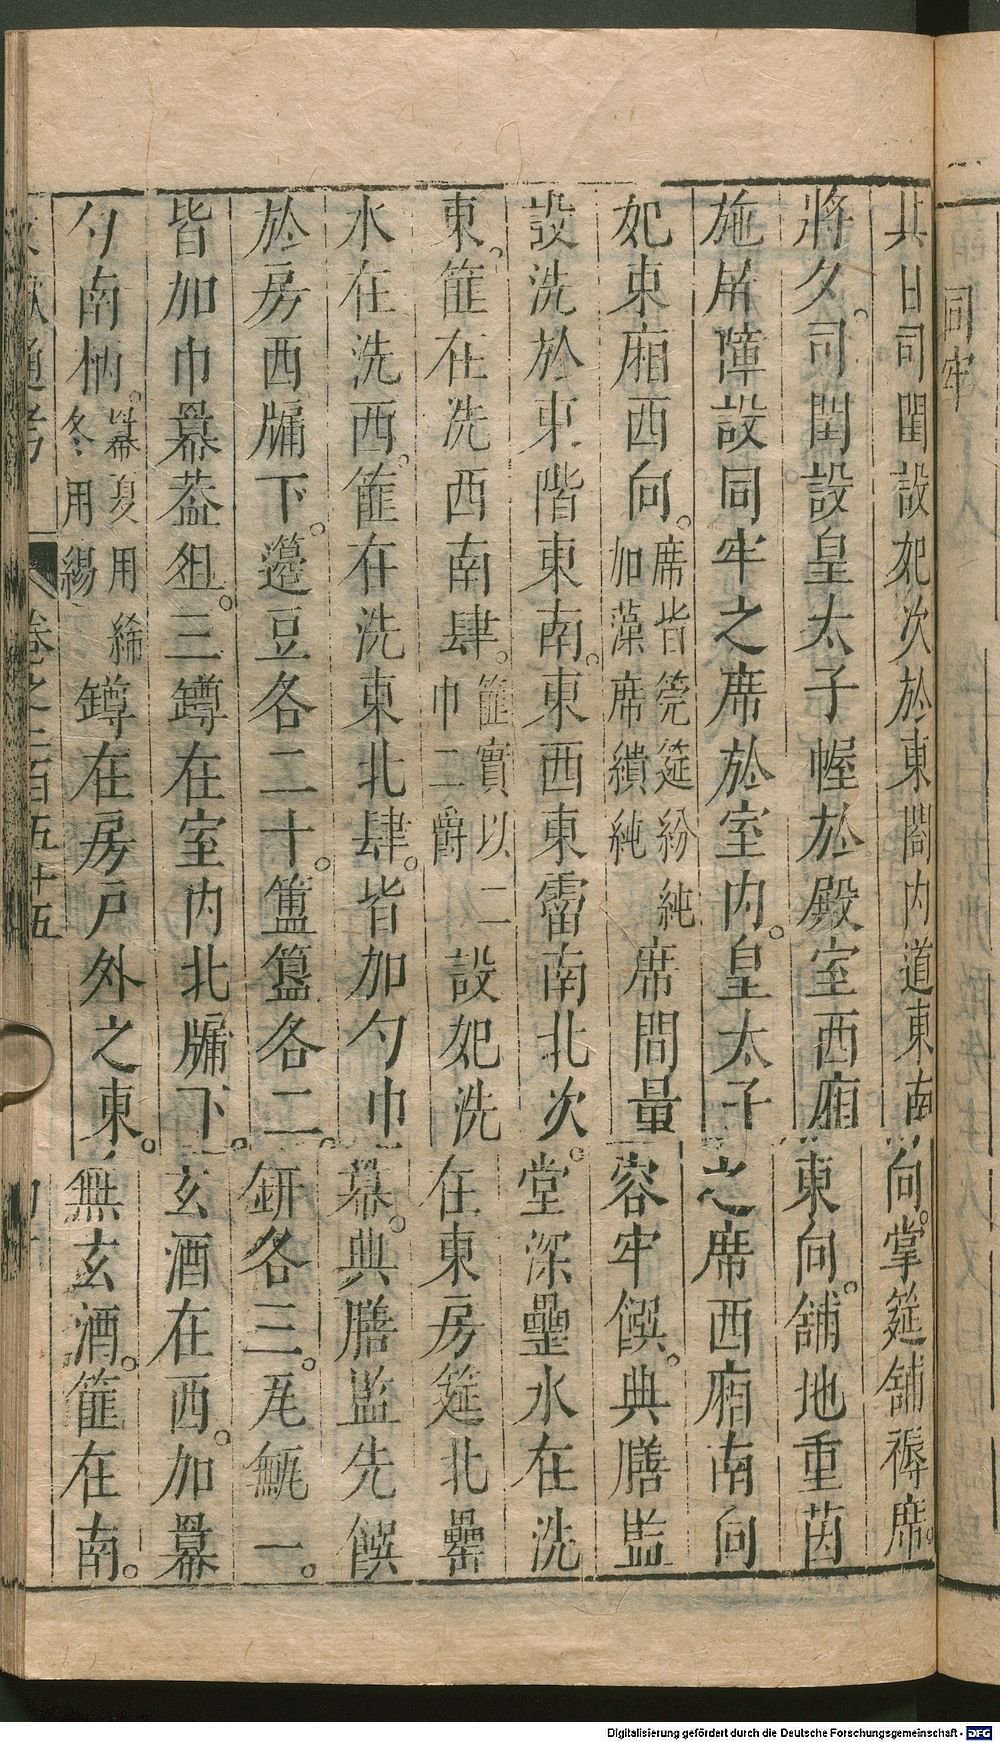 同牢
其日司閨設妃次於東閤内道東南向掌筵鋪褥席
將夕司閨設皇太子幄於殿室西廂東向鋪地重茵
施屏障設同牢之席於室内皇太子之席西廂南向
妃東廂西向席皆筦筵紛純加藻席繢純席間量容牢饌典膳監
設洗於東階東南東西東霤南北次堂深罍水在洗
東篚在洗西南肆篚實以二巾二爵設妃洗在東房筵北罍
水在洗西篚在洗東北肆皆加勺巾冪典膳監先饌
於房西牖下籩豆各二十簠簋各二鈃各三瓦甒一
皆加巾冪葢俎三罇在室内北牖下玄酒在西加冪
勺南柄冪夏用綌冬用緆罇在房戶外之東無玄酒篚在南
文獻通考 卷之二百五十五
Digitalisierung gefördert durch die Deutsche Forschungsgemeinschaft - DFG